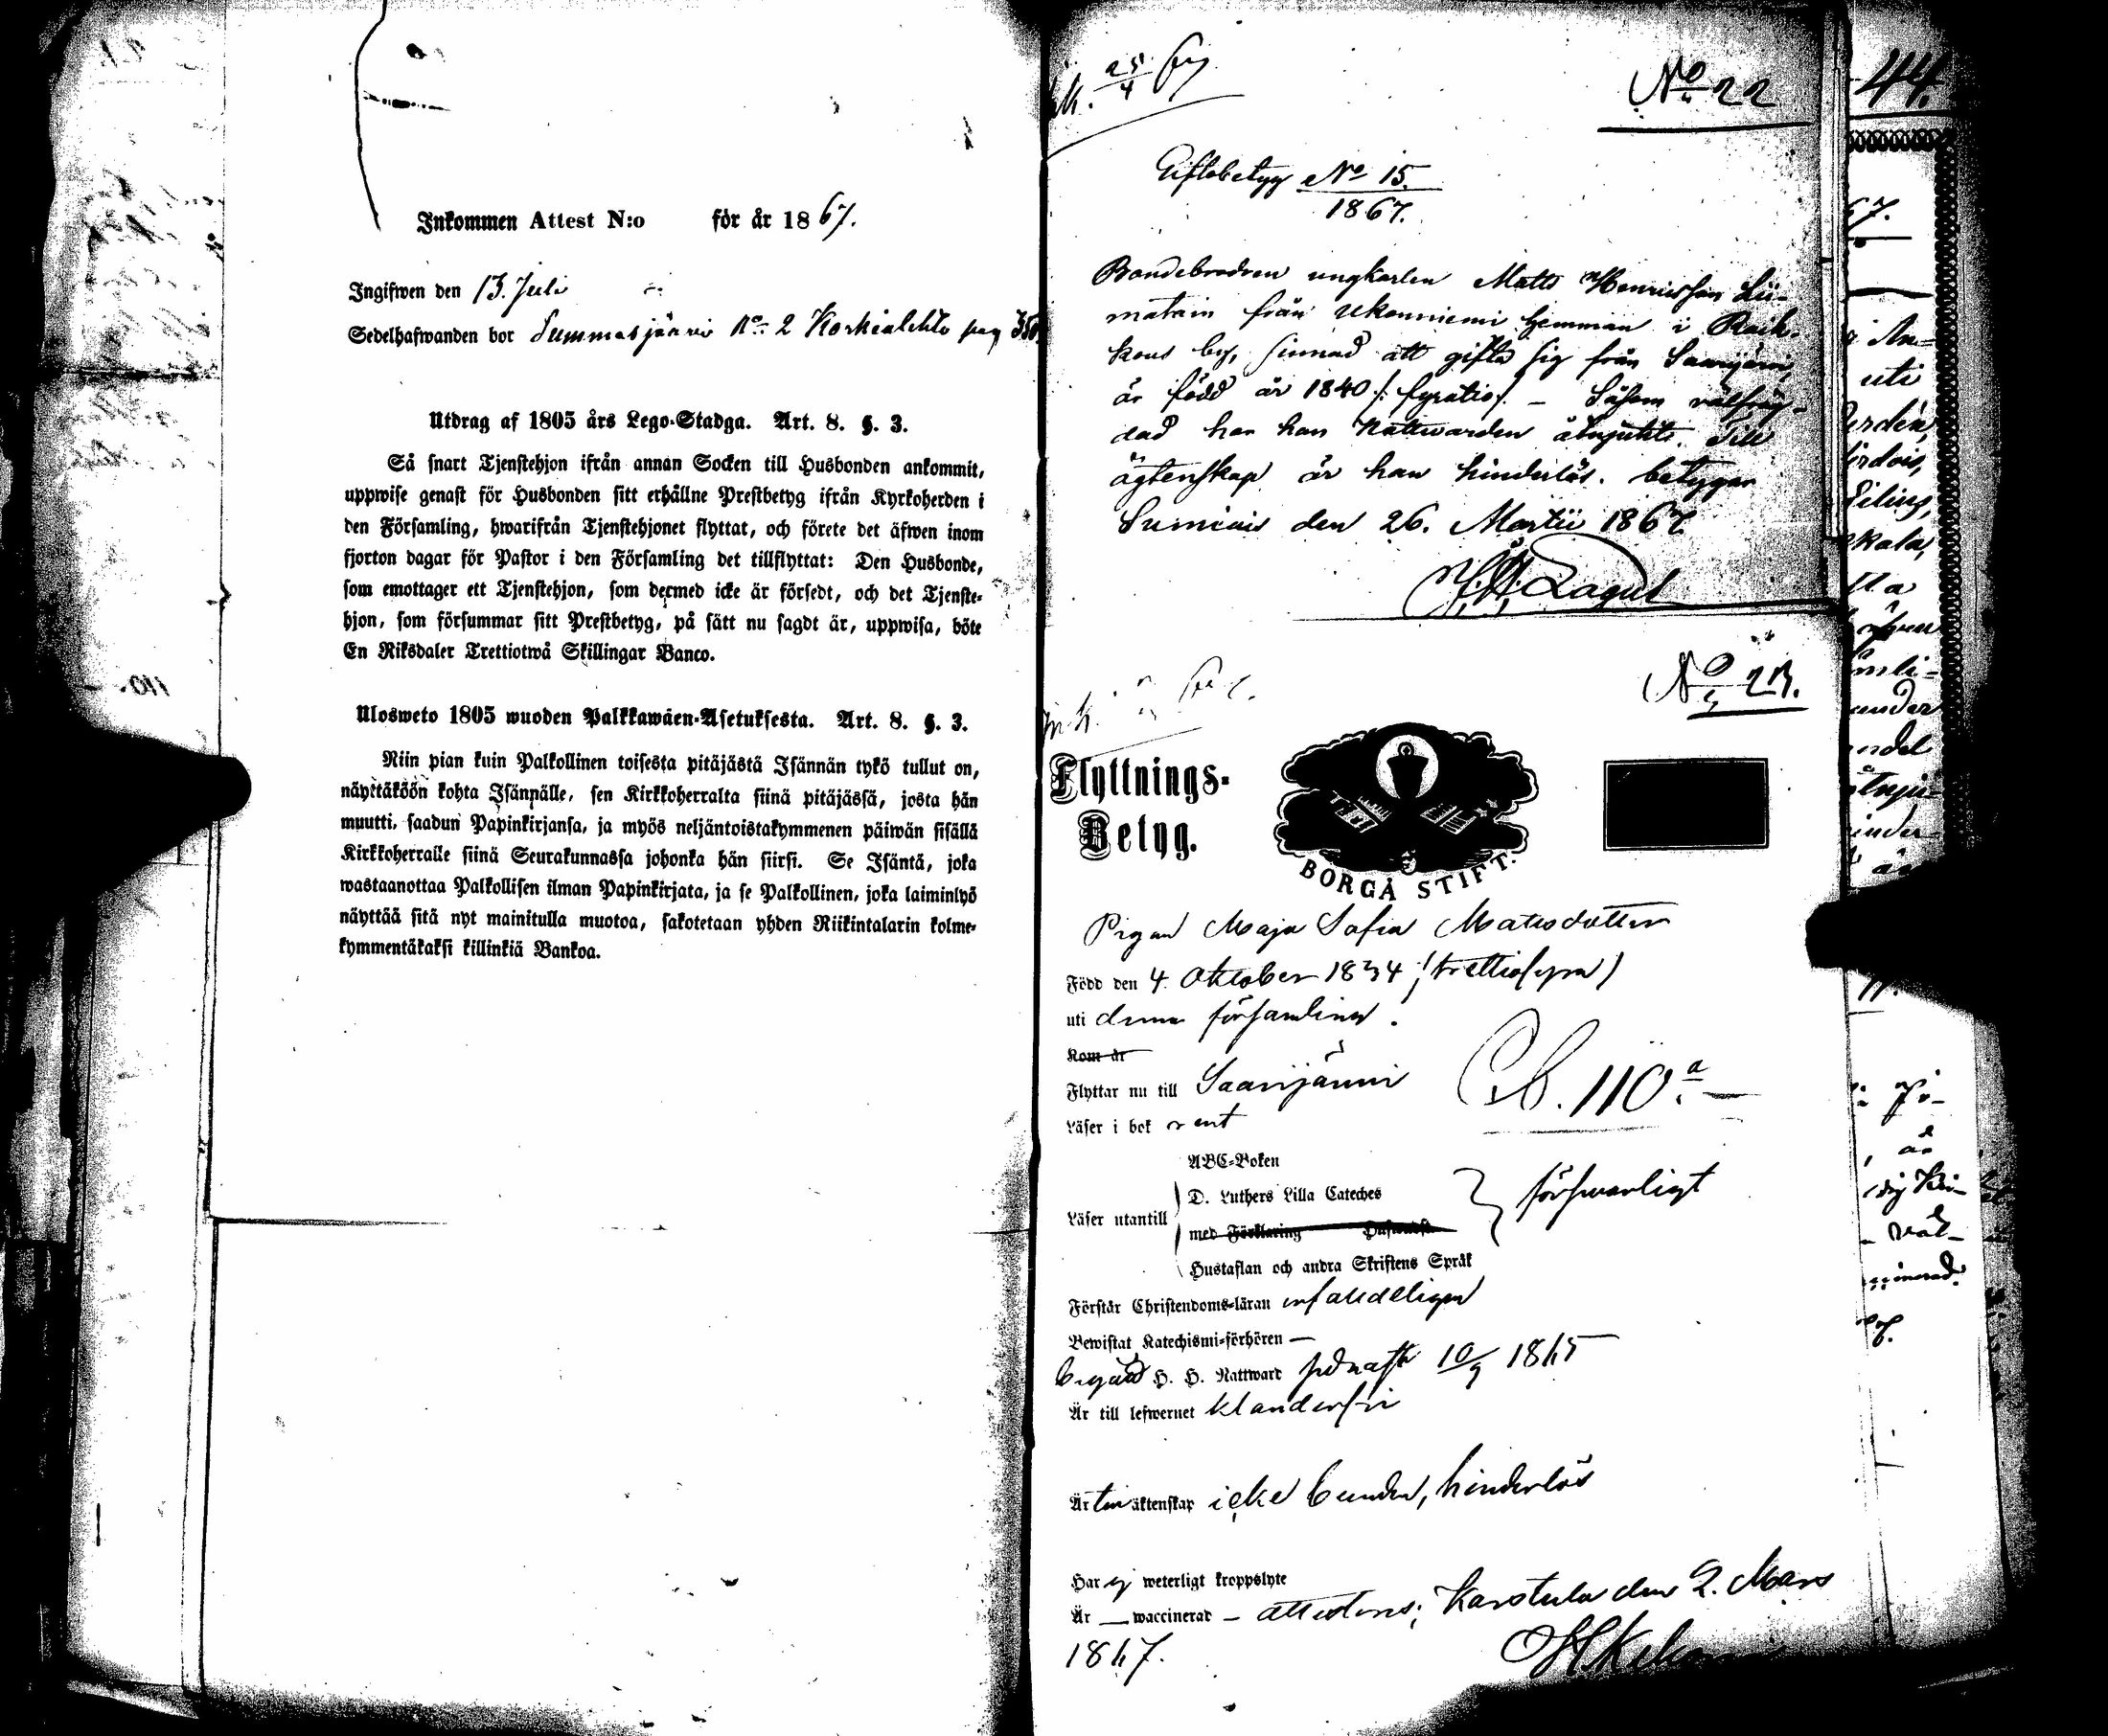 Inkommen Attest N:o för år 1867.
Ingifwen den 13. Juli
Sedelhafwanden bor Summasjärvi No 2 Korkialehto pag 350
Utdrag af 1805 års Lego-Stadga. Art. 8. §. 3.
Så snart Tjenstehjon ifrån annan Socken till Husbonden ankommit,
uppwise genast för Husbonden sitt erhållne Prestbetyg ifrån Kyrkoherden i
den Församling, hwarifrån Tjenstehjonet flyttat, och förete det äfwen inom
fjorton dagar för Pastor i den Församling det tillflyttat: Den Husbonde,
som emottager ett Tjenstehjon, som dermed icke är försedt, och det Tjenste-
hjon, som försummar sitt Prestbetyg, på sätt nu sagdt är, uppwisa, böte
En Riksdaler Trettiotwå Skillingar Banco.
Ulosweto 1805 wuoden Palkkawäen-Asetuksesta. Art. 8. §. 3.
Niin pian kuin Palkollinen toisesta pitäjästä Isännän tykö tullut on,
näyttäköön kohta Isännälle, sen Kirkkoherralta siinä pitäjässä, josta hän
muutti, saadun Papinkirjansa, ja myös neljäntoistakymmenen päiwän sisällä
Kirkkoherralle siinä Seurakunnassa johonka hän siirsi. Se Isäntä, joka
wastaanottaa Palkollisen ilman Papinkirjata, ja se Palkollinen, joka laiminlyö
näyttää sitä nyt mainitulla muotoa, sakotetaan yhden Riikintalarin kolme-
kymmentäkaksi killinkiä Bankoa.
25/4 67
No 22
Giftobetyg No 15.
1867.
Bondebrodren ungkarlen Matts Henricsson Lii-
matain från Ukonniemi hemman i Raik-
kous by, sinnad att gifta sig från Saarijärvi,
är född år 1840 /: fyratio /. – Såsom välfräj-
dad har han Nattwarden åtnjutit. Till
ägtenskap är han hinderlös. betygar
Sumiais den 26. Martii 1867.
No 23.
Flyttnings-
Betyg.
BORGÅ STIFT.
Pigan Maja Sofia Mattsdotter
Född den 4. oktober 1834 /trettiofyra/
uti denna församling.
Kom år
Flyttar nu till Saarijärvi
Cb. 110 a
Läser i bok rent
ABC-Boken
D. Luthers Lilla Cateches
Läser utantill med Förklaring försvarligt
Hustaflan och andra Skriftens Språk
Förstår Christendoms-läran enfaldeligen
Bewistat Katechismi-förhören —
begått H. H. Nattward sednast 10/9 1865
Är till lefwernet klanderfri
Är till äktenskap icke bunden, hinderlös
Har ej weterligt kroppslyte
Är — waccinerad – attesteras; Karstula den 2. Mars
1867.
44.